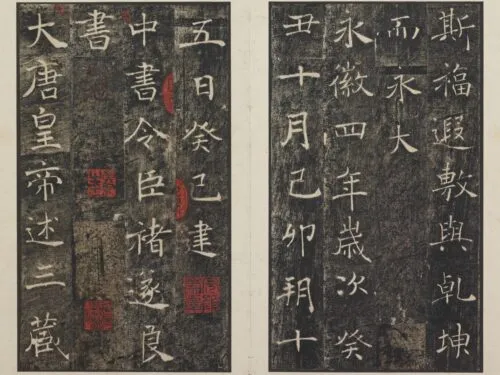 斯福遐敷與乾坤
而永大
永徽四年歲次癸
丑十月己卯朔十
五日癸巳建
中書令臣褚遂良
書
大唐皇帝述三藏